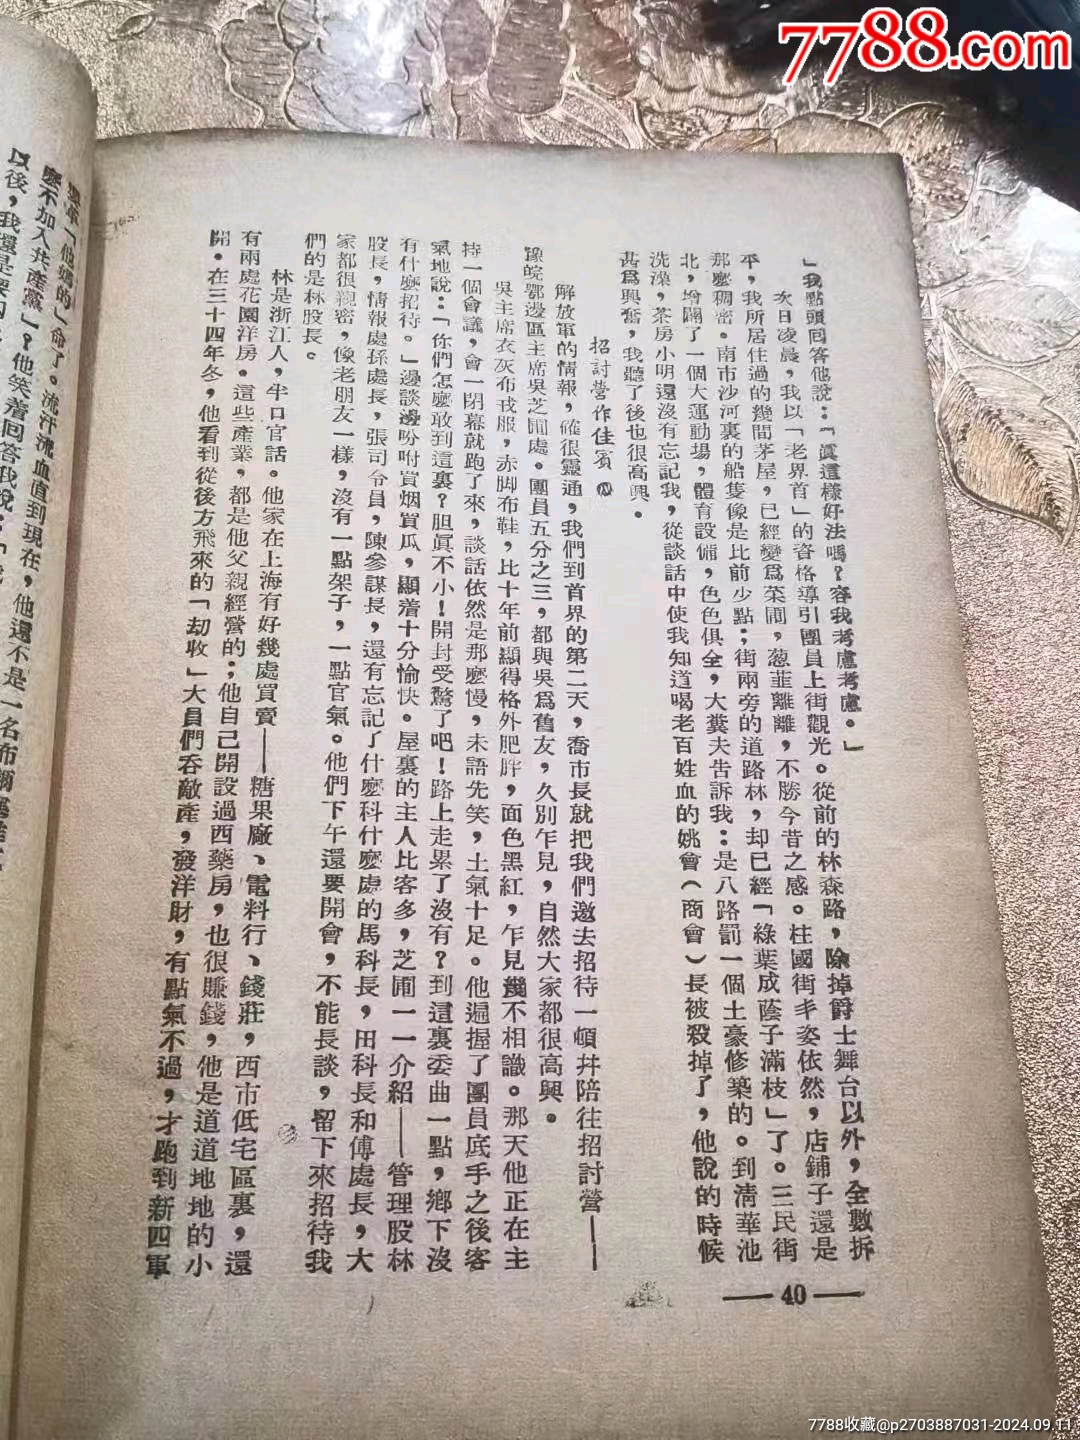 7788.com
」我點頭回答他說：「眞這樣好法嗎？容我考慮考慮。」
次日凌晨，我以「老界首」的資格導引團員上街觀光。從前的林森路，除掉爵士舞台以外，全數拆
平，我所居住過的幾間茅屋，已經變爲菜圃，葱韮離離，不勝今昔之感。柱國街丰姿依然，店鋪子還是
那麼稠密。南市沙河裏的船隻像是比前少點；街兩旁的道路林，却已經「綠葉成蔭子滿枝」了。三民街
北，增闢了一個大運動場，體育設備，色色俱全，大糞夫告訴我：是八路罰一個土豪修築的。到淸華池
洗澡，茶房小明還沒有忘記我，從談話中使我知道喝老百姓血的姚會（商會）長被殺掉了，他說的時候
甚爲興奮，我聽了後也很高興。
招討營作佳賓
解放軍的情報，確很靈通，我們到首界的第二天，喬市長就把我們邀去招待一頓幷陪往招討營——
豫皖鄂邊區主席吳芝圃處。團員五分之三，都與吳爲舊友，久別乍見，自然大家都很高興。
吳主席衣灰布戎服，赤脚布鞋，比十年前顯得格外肥胖，面色黑紅，乍見幾不相識。那天他正在主
持一個會議，會一閉幕就跑了來，談話依然是那麼慢，未語先笑，土氣十足。他遍握了團員底手之後客
氣地說：「你們怎麼敢到這裏？胆眞不小！開封受驚了吧！路上走累了沒有？到這裏委曲一點，鄉下沒
有什麼招待。」邊談邊吩咐買烟買瓜，顯着十分愉快。屋裏的主人比客多，芝圃一一介紹——管理股林
股長，情報處孫處長，張司令員，陳參謀長，還有忘記了什麼科什麼處的馬科長，田科長和傅處長，大
家都很親密，像老朋友一樣，沒有一點架子，一點官氣。他們下午還要開會，不能長談，留下來招待我
們的是林股長。
林是浙江人，半口官話。他家在上海有好幾處買賣——糖果廠、電料行、錢莊，西市低宅區裏，還
有兩處花園洋房。這些產業，都是他父親經營的；他自己開設過西藥房，也很賺錢，他是道道地地的小
開。在三十四年冬，他看到從後方飛來的「刧收」大員們吞敵產，發洋財，有點氣不過，才跑到新四軍
— 40 —
「他媽的」命了。流汗流血直到現在，他還不是一名布
麼不加入共產黨」？他笑着回答我說：
以後，我還是
7788收藏@p2703887031-2024.09.11